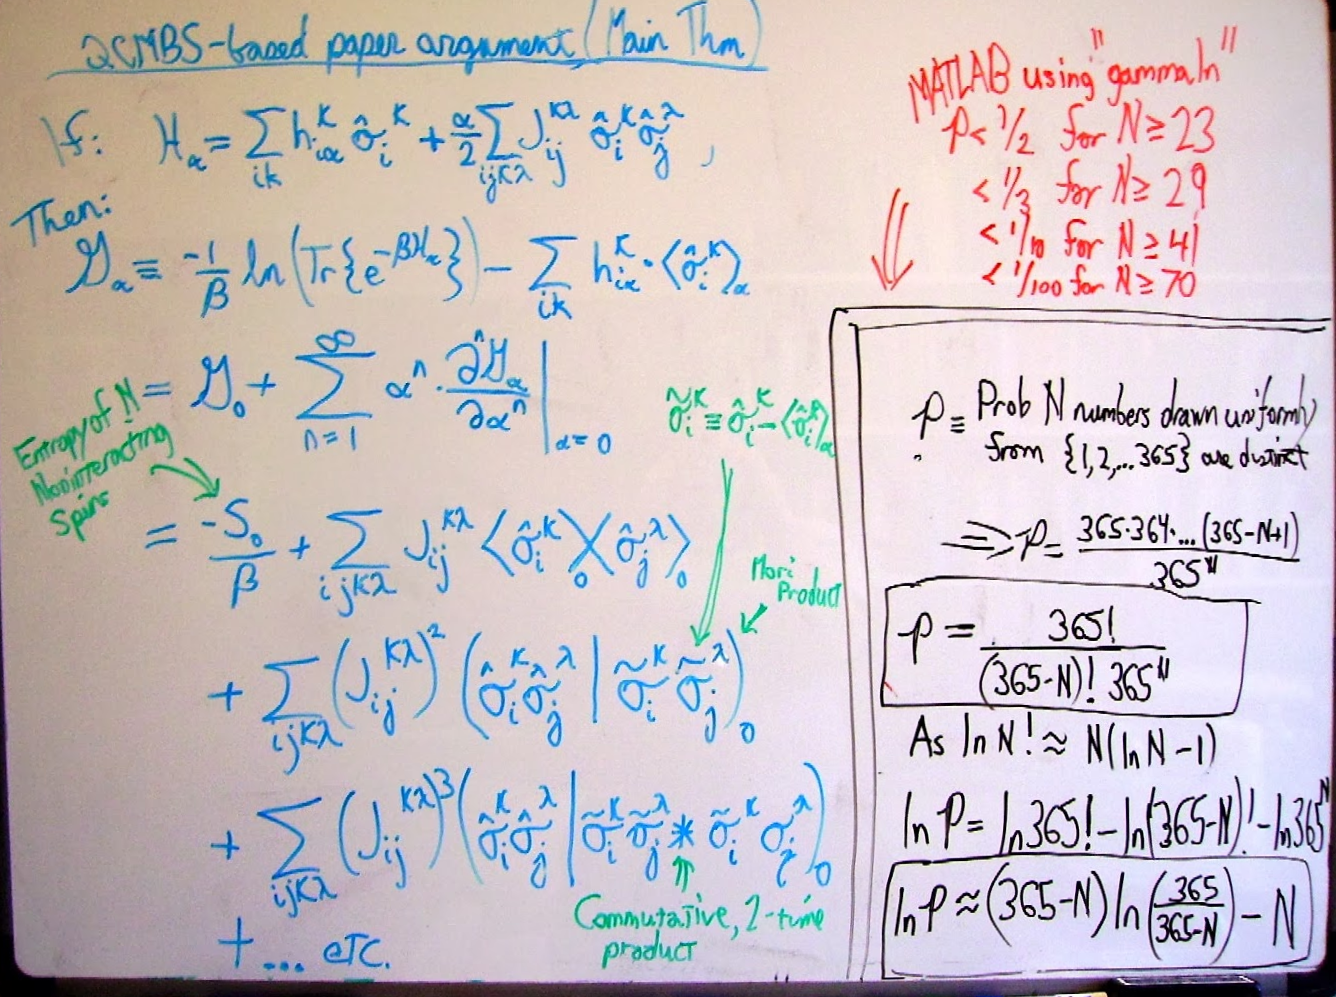 QCMBS-based paper argument (Main Thm)
If: H_α = Σ_{ik} h_{iα}^K σ̂_i^K + α/2 Σ_{ijKλ} J_{ij}^{Kλ} σ̂_i^K σ̂_j^λ ,
Then:
G_α ≡ -1/β ln(Tr{e^{-βH_α}}) - Σ_{ik} h_{iα}^K · ⟨σ̂_i^K⟩_α
= G_0 + Σ_{n=1}^∞ α^n · ∂^n G_α / ∂α^n |_{α=0}
Entropy of N
Noninteracting
Spins
σ̃_i^K ≡ σ̂_i^K - ⟨σ̂_i^K⟩_α
= -S_0/β + Σ_{ijKλ} J_{ij}^{Kλ} ⟨σ̂_i^K⟩_0 ⟨σ̂_j^λ⟩_0
Mori
Product
+ Σ_{ijKλ} (J_{ij}^{Kλ})^2 (σ̂_i^K σ̂_j^λ | σ̃_i^K σ̃_j^λ)_0
+ Σ_{ijKλ} (J_{ij}^{Kλ})^3 (σ̂_i^K σ̂_j^λ | σ̃_i^K σ̃_j^λ * σ̃_i^K σ_j^λ)_0
Commutative, 2-time
product
+ ... etc.
MATLAB using "gammaln"
p < 1/2 for N ≥ 23
< 1/3 for N ≥ 29
< 1/10 for N ≥ 41
< 1/100 for N ≥ 70
p ≡ Prob N numbers drawn uniformly
from {1,2,...365} are distinct
⇒ p = 365·364·...(365-N+1) / 365^N
p = 365! / (365-N)! 365^N
As ln N! ≈ N(ln N - 1)
ln p = ln365! - ln(365-N)! - ln365^N
ln p ≈ (365-N) ln(365/365-N) - N